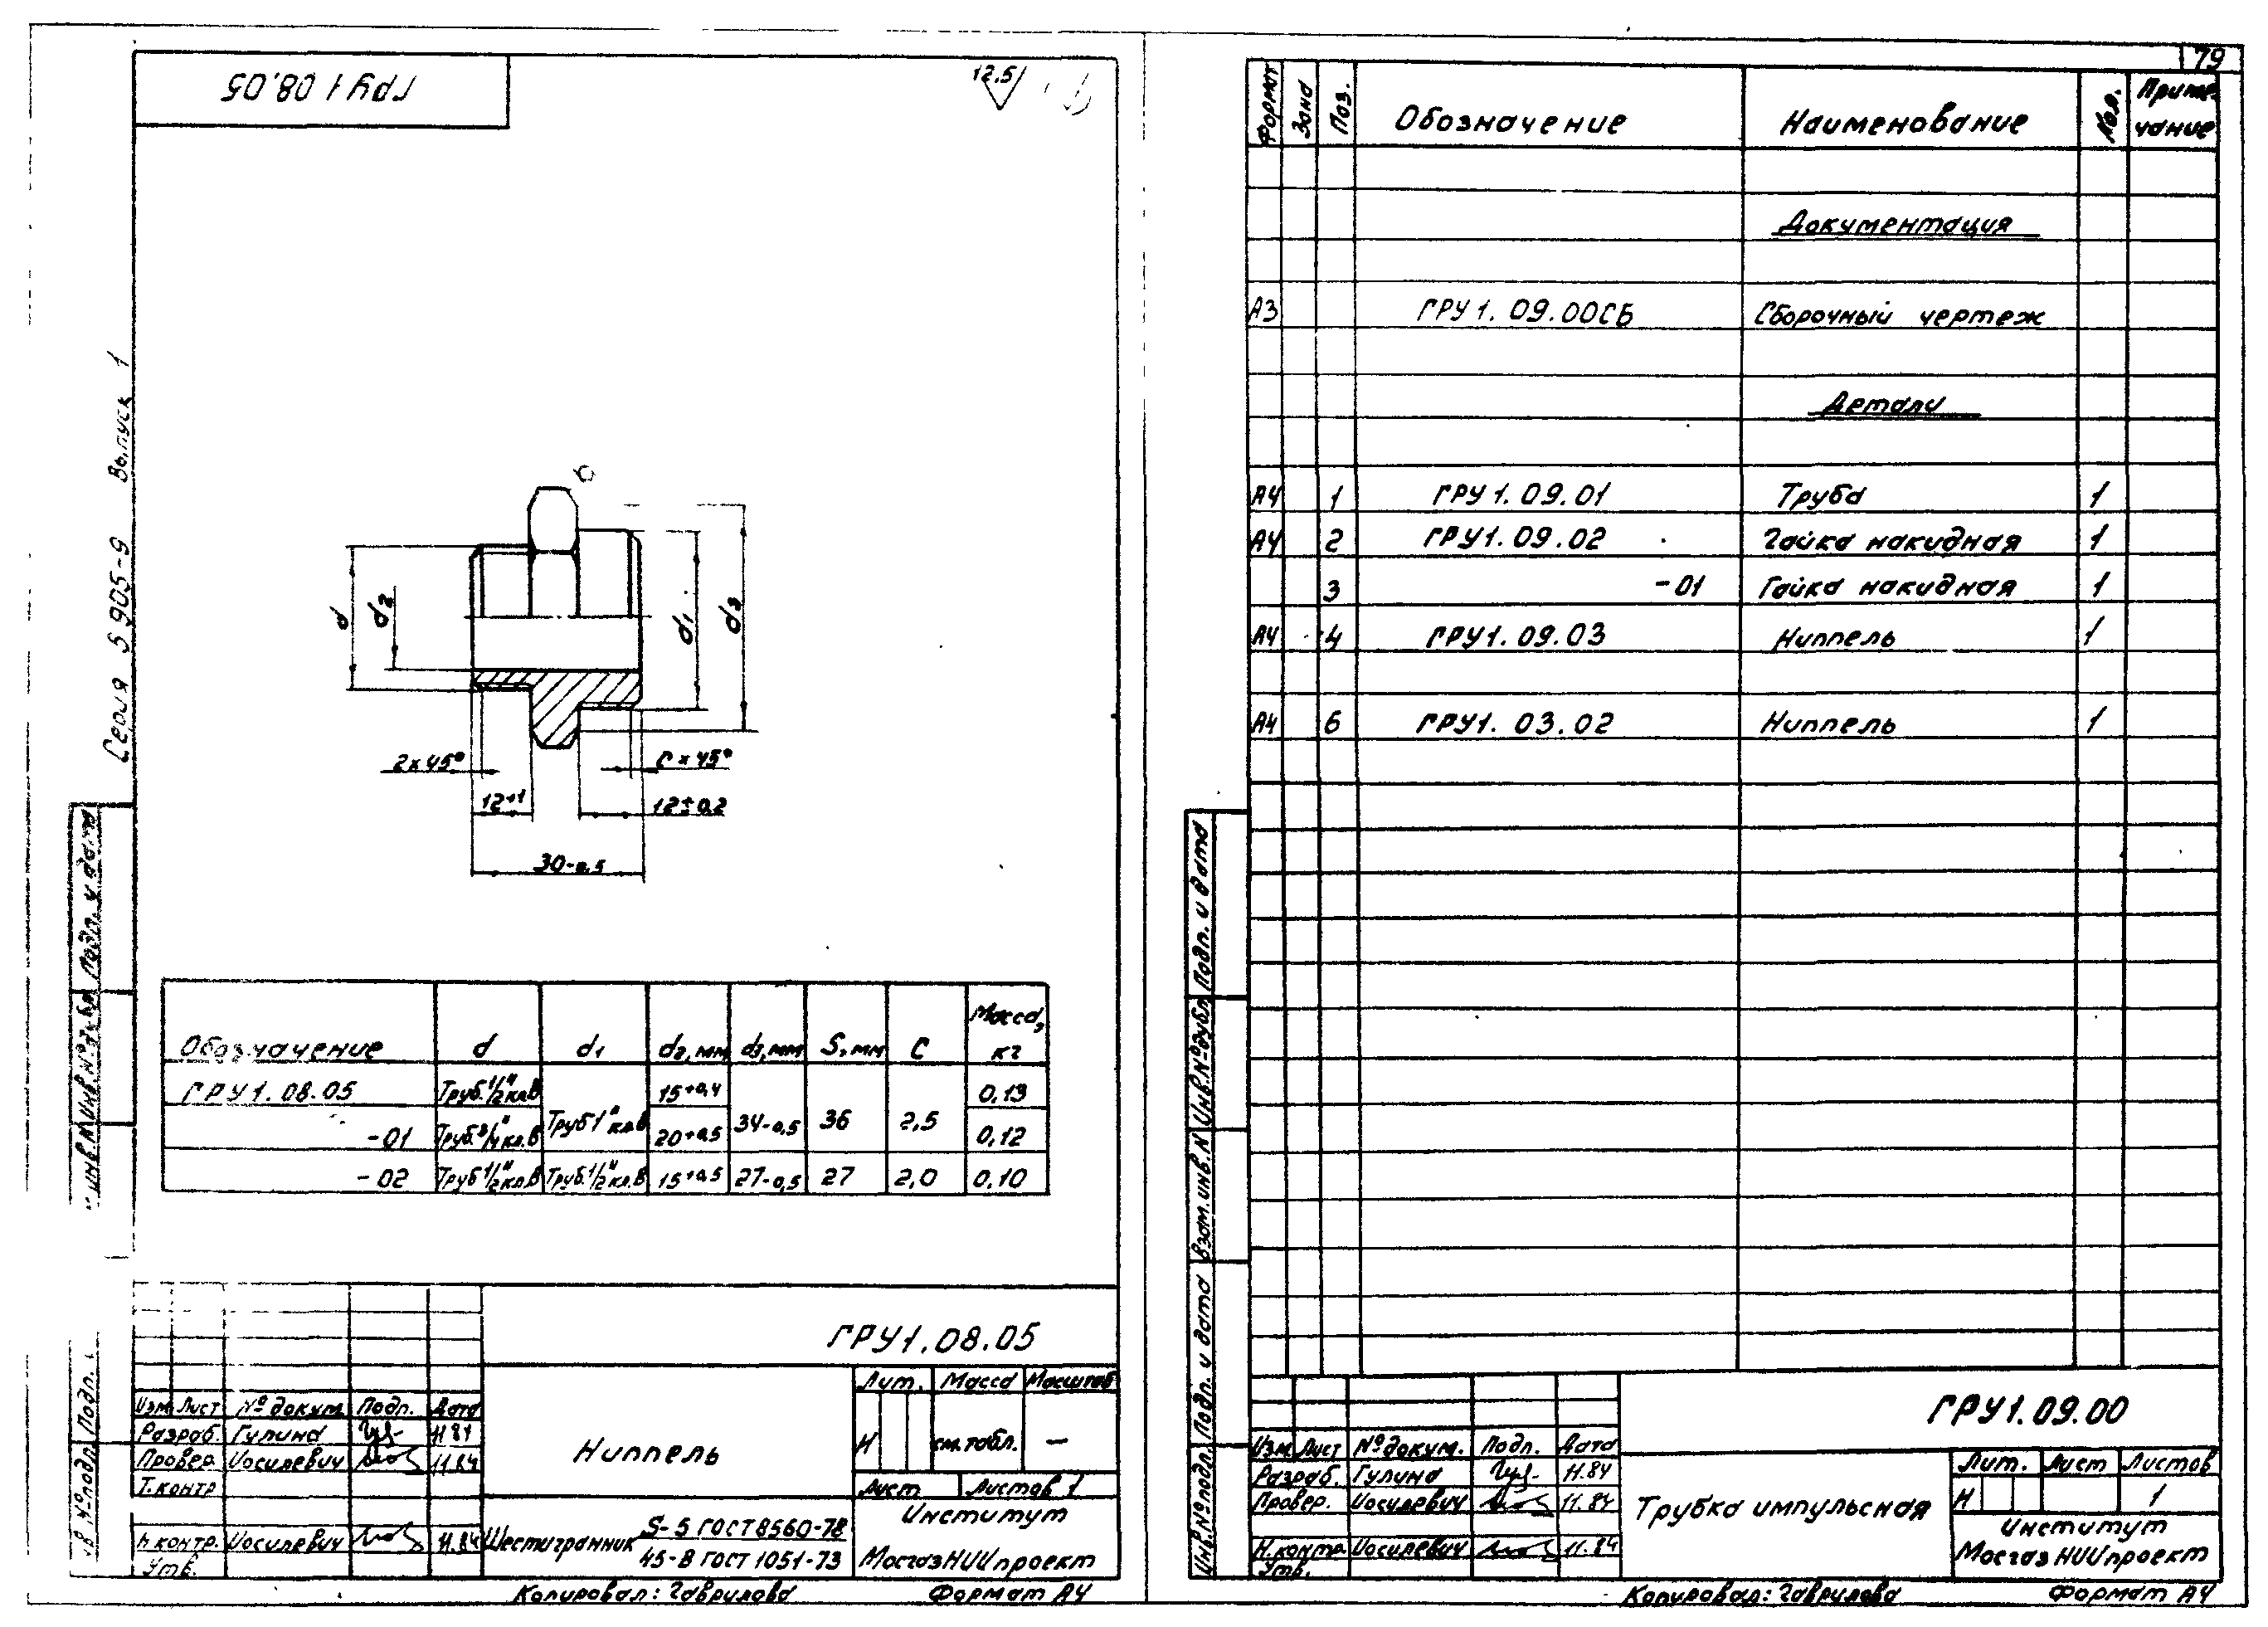 ГРУ1 08.05
12,5
Серия 5 905-9 Выпуск 1
d
d2
d1
d3
2×45°
С×45°
12+1
12±0,2
30-0,5
Обозначение d d1 d2,мм d3,мм S,мм C Масса, кг
ГРУ1.08.05 Труб.1/2"кл.В Труб1"кл.В 15+0,4 34-0,5 36 2,5 0,13
-01 Труб.3/4"кл.В 20+0,5 0,12
-02 Труб1/2"кл.В Труб.1/2"кл.В 15+0,5 27-0,5 27 2,0 0,10
Подп. и дата
Инв.№дубл
Инв.N
Подп.
№подл.
ГРУ1.08.05
Изм Лист №докум. Подп. Дата
Разраб. Гулина 11.84
Провер. Иосилевич 11.84
Т.контр
Н.контр. Иосилевич 11.84
Утв.
Ниппель
Лит. Масса Масштаб
И см.табл. —
Лист Листов 1
Шестигранник S-5 ГОСТ8560-78
45-В ГОСТ 1051-73
Институт
МосгазНИИпроект
Копировал: Гаврилова Формат А4
79
Формат Зона Поз. Обозначение Наименование Кол. Примечание
Документация
А3 ГРУ1.09.00СБ Сборочный чертеж
Детали
А4 1 ГРУ1.09.01 Труба 1
А4 2 ГРУ1.09.02 Гайка накидная 1
3 -01 Гайка накидная 1
А4 4 ГРУ1.09.03 Ниппель 1
А4 6 ГРУ1.03.02 Ниппель 1
Подп. и дата
Инв.№дубл
Взам.инв.N
Подп. и дата
Инв.№подл.
ГРУ1.09.00
Изм Лист №докум. Подп. Дата
Разраб. Гулина 11.84
Провер. Иосилевич 11.84
Н.контр. Иосилевич 11.84
Утв.
Трубка импульсная
Лит. Лист Листов
И 1
Институт
МосгазНИИпроект
Копировал: Гаврилова Формат А4